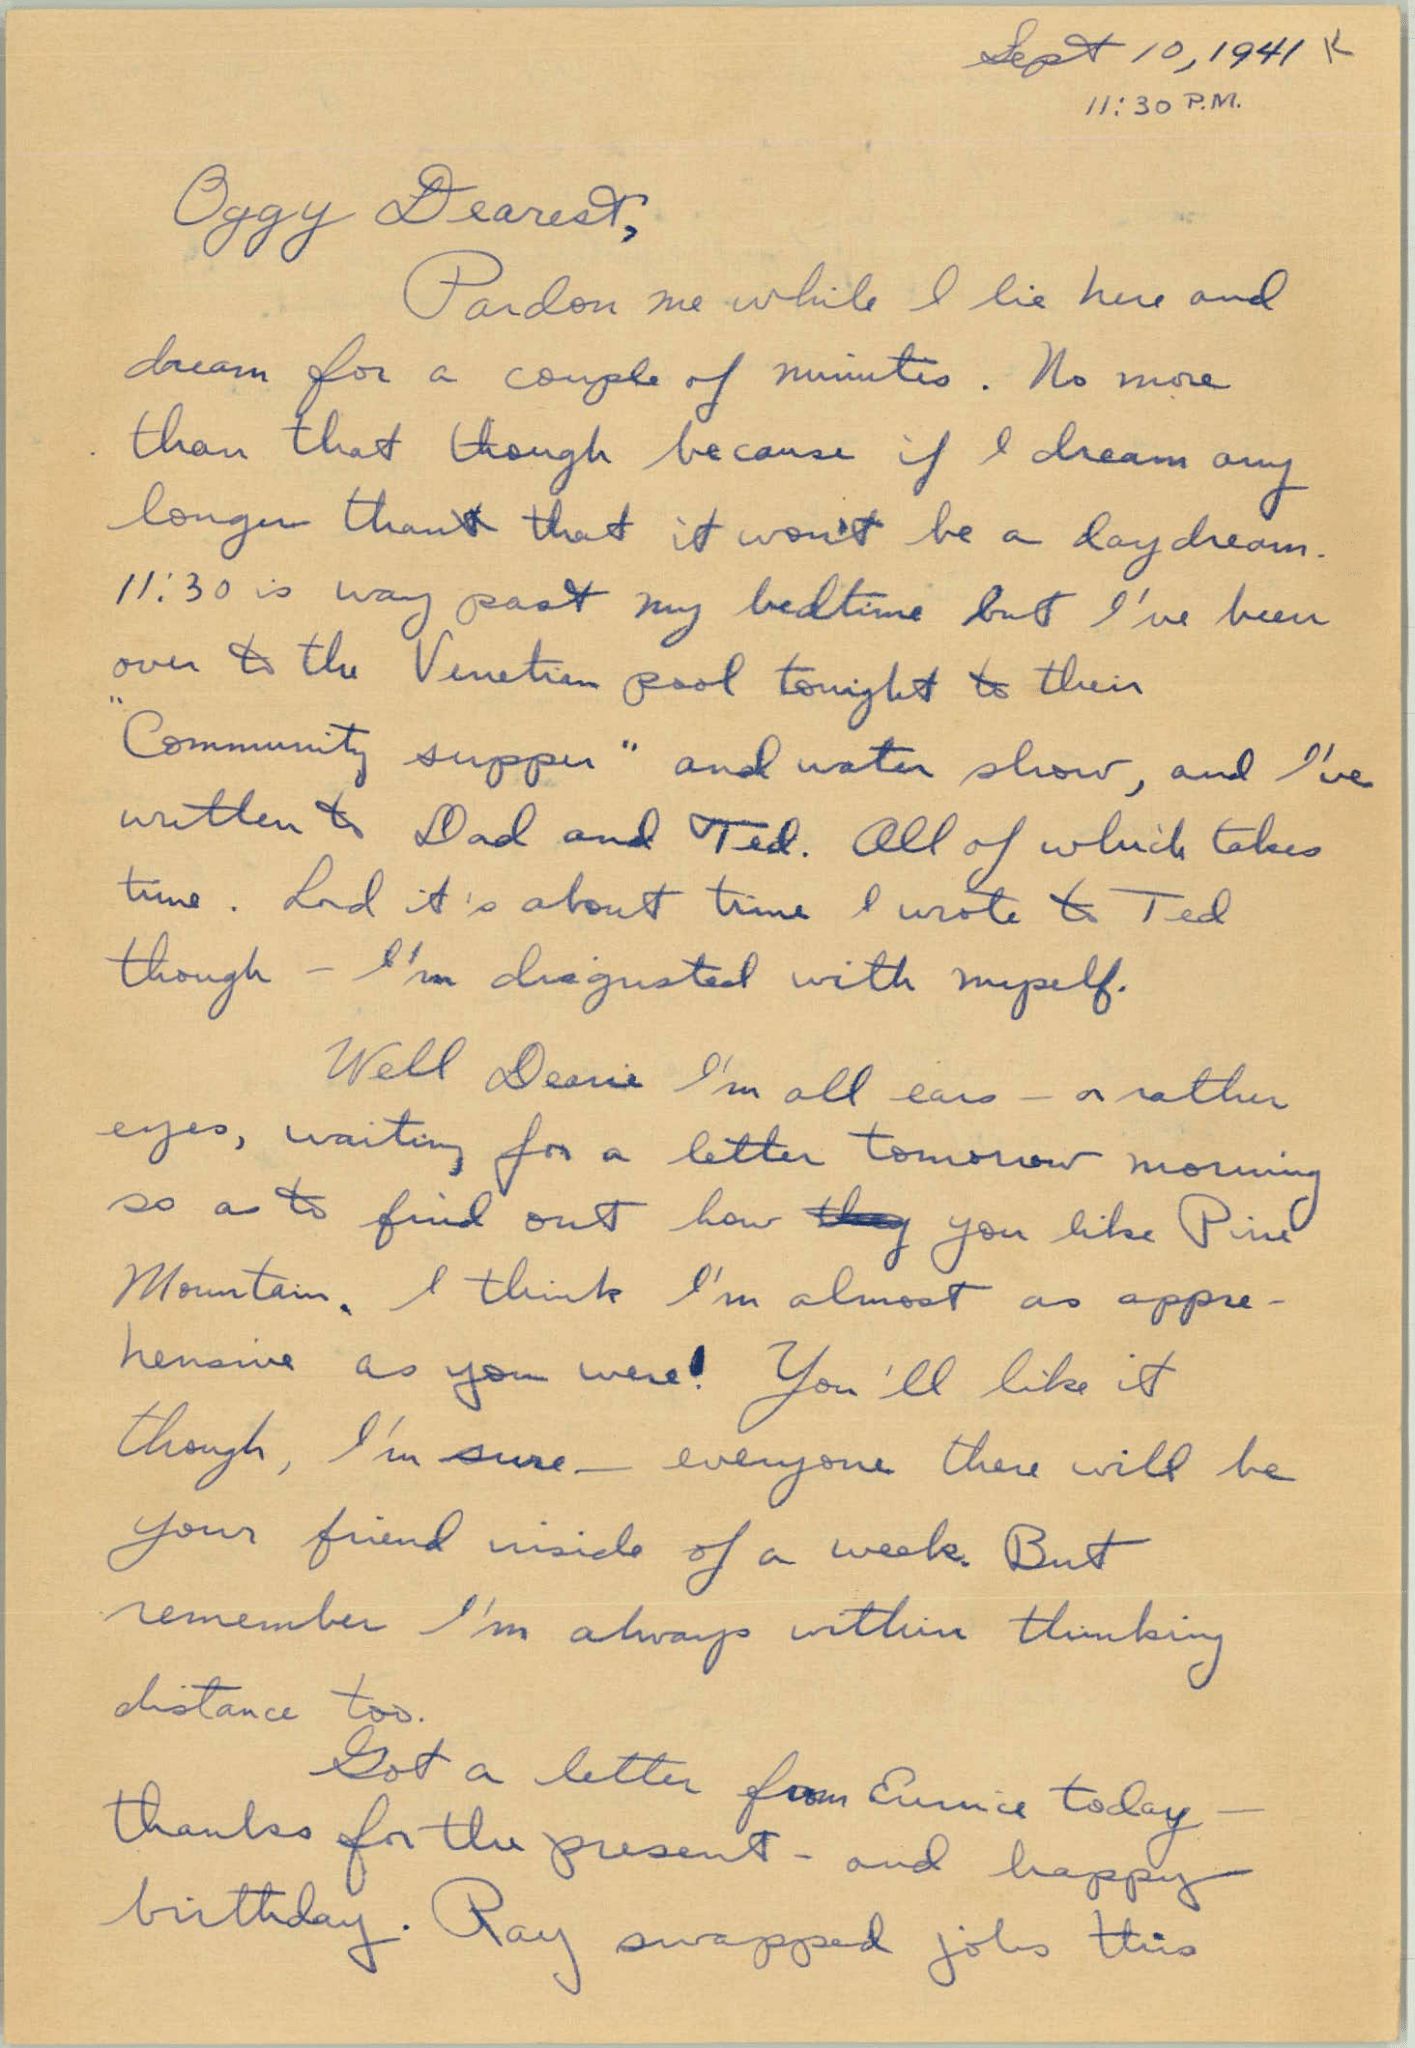 Sept 10, 1941 K
11:30 P.M.
Oggy Dearest,
Pardon me while I lie here and
dream for a couple of minutes. No more
than that though because if I dream any
longer than that it won't be a daydream.
11:30 is way past my bedtime but I've been
over to the Venetian pool tonight to their
"Community supper" and water show, and I've
written to Dad and Ted. All of which takes
time. Lord it's about time I wrote to Ted
though — I'm disgusted with myself.
Well Dearie I'm all ears — or rather
eyes, waiting for a letter tomorrow morning
so as to find out how they you like Pine
Mountain. I think I'm almost as appre-
hensive as you were! You'll like it
though, I'm sure — everyone there will be
your friend inside of a week. But
remember I'm always within thinking
distance too.
Got a letter from Eunice today —
thanks for the present — and happy
birthday. Ray swapped jobs this